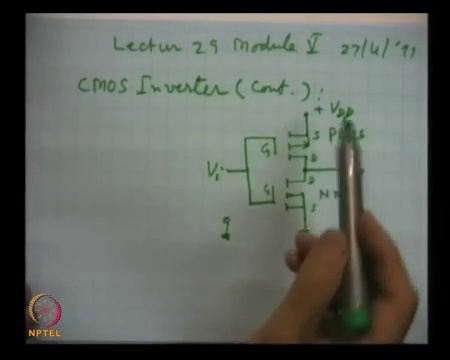 Lectur 29 Module V 27/4/'91
CMOS Inverter (Cont.):
+ VDD
S
G
D
Vi
D
G
S
NPTEL